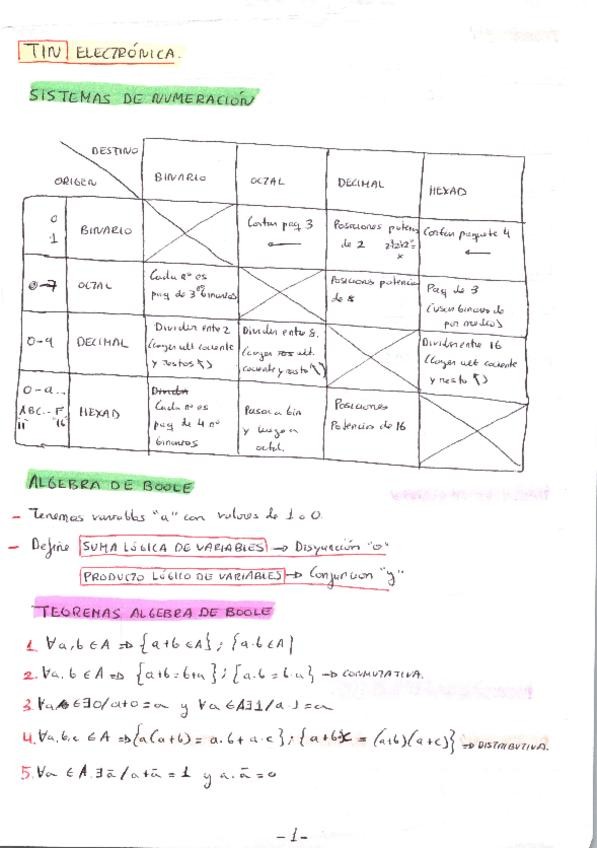 TIN ELECTRÓNICA.
SISTEMAS DE NUMERACIÓN
DESTINO
ORIGEN
BINARIO
OCTAL
DECIMAL
HEXAD
0
1
BINARIO
Cortar paq 3
Posiciones potencia
de 2
Cortar paquete 4
0-7
OCTAL
Cada nº es
paq de 3 binarios
Posiciones potencia
de 8
Paq de 3
(usar binario de
por medio)
0-9
DECIMAL
Dividir entre 2
(coger ult cociente
y restos ↖)
Dividir entre 8.
(coger ult.
cociente y resto ↖)
Dividir entre 16
(coger ult cociente
y resto ↖)
0-a...
ABC... F
HEXAD
Dividir
Cada nº es
paq de 4 nº
binarios
Pasar a bin
y luego a
octal.
Posiciones
Potencias de 16
ALGEBRA DE BOOLE
- Tenemos variables "a" con valores de 1 o 0.
- Define SUMA LÓGICA DE VARIABLES → Disyunción "o"
PRODUCTO LÓGICO DE VARIABLES → Conjuncion "y"
TEOREMAS ALGEBRA DE BOOLE
1. ∀a,b ∈ A ⇒ {a+b ∈ A} ; {a·b ∈ A}
2. ∀a,b ∈ A ⇒ {a+b = b+a} ; {a·b = b·a} → CONMUTATIVA.
3. ∀a ∈ ∃0/a+0=a y ∀a ∈ A∃1/a·1=a
4. ∀a,b,c ∈ A ⇒ {a(a+b) = a·b + a·c} ; {a+b·c = (a+b)(a+c)} ⇒ DISTRIBUTIVA.
5. ∀a ∈ A ∃ā/a+ā = 1 y a·ā = 0
-1-